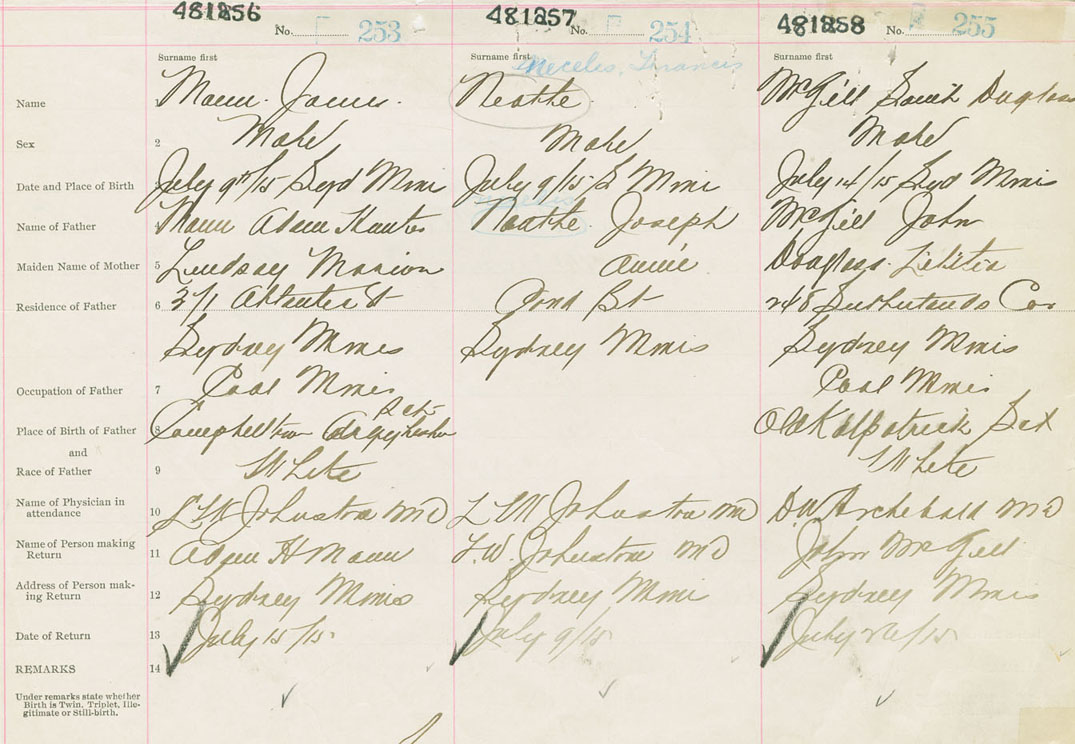 481256 481257 481258
No. 253 No. 254 No. 255
Surname first Surname first Surname first
Meceles, Francis
Name 1 Mann James Neathe McGill Douglass
Sex 2 Male Male Male
Date and Place of Birth July 9th/15 Syd Mines July 9/15 S Mines July 14/15 Syd Mines
Name of Father 4 Mann Adam Joseph McGill John
Maiden Name of Mother 5 Lindsay Marion Annie Douglass Letitia
Residence of Father 6 Pond St 248 Sutherlands Cor
Sydney Mines Sydney Mines Sydney Mines
Occupation of Father 7 Coal Mines Coal Mines
Place of Birth of Father 8 Campbeltown Old Kilpatrick
and
Race of Father 9 White White
Name of Physician in
attendance 10 Johnston MD Johnston MD Archibald MD
Name of Person making
Return 11 Adam H Mann L.W. Johnston MD John McGill
Address of Person mak-
ing Return 12 Sydney Mines Sydney Mines Sydney Mines
Date of Return 13 July 15/15 July 9/15 July 26/15
REMARKS 14
Under remarks state whether
Birth is Twin, Triplet, Ille-
gitimate or Still-birth.